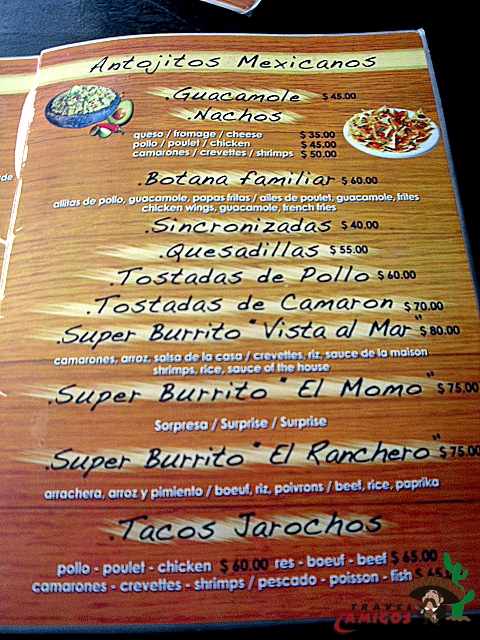 Antojitos Mexicanos
.Guacamole $ 45.00
.Nachos
queso / fromage / cheese $ 35.00
pollo / poulet / chicken $ 45.00
camarones / crevettes / shrimps $ 50.00
.Botana familiar $ 60.00
allitas de pollo, guacamole, papas fritas / ailes de poulet, guacamole, frites
chicken wings, guacamole, french fries
.Sincronizadas $ 40.00
.Quesadillas $ 55.00
.Tostadas de Pollo $ 60.00
.Tostadas de Camaron $ 70.00
.Super Burrito "Vista al Mar" $ 80.00
camarones, arroz, salsa de la casa / crevettes, riz, sauce de la maison
shrimps, rice, sauce of the house
.Super Burrito " El Momo " $ 75.00
Sorpresa / Surprise / Surprise
.Super Burrito " El Ranchero" $ 75.00
arrachera, arroz y pimiento / boeuf, riz, poivrons / beef, rice, paprika
.Tacos Jarochos
pollo - poulet - chicken $ 60.00 res - boeuf - beef $ 65.00
camarones - crevettes - shrimps / pescado - poisson - fish $
TRAVEL
AMIGOS